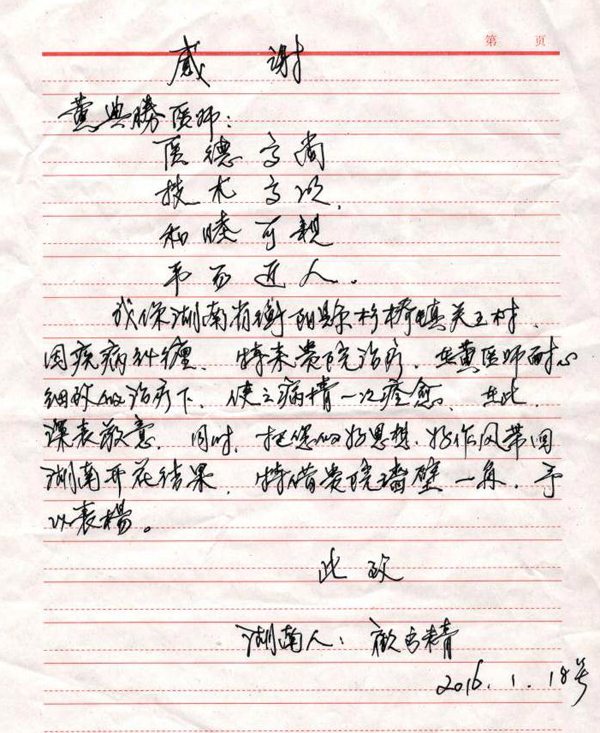 第 页
感 谢
黄典勝医师：
医德高尚
技术高
和睦可親
平易近人。
我係湖南省衡阳县杉桥镇关王村，
因疾病纠缠，特来贵院治疗，在黄医师耐心
细致的治疗下，使之病情一次痊愈，在此，
深表敬意，同时，把您的好思想，好作风带回
湖南开花结果，特借贵院墙壁一角，予
以表楊。
此致
湖南人：
2016.1.18号